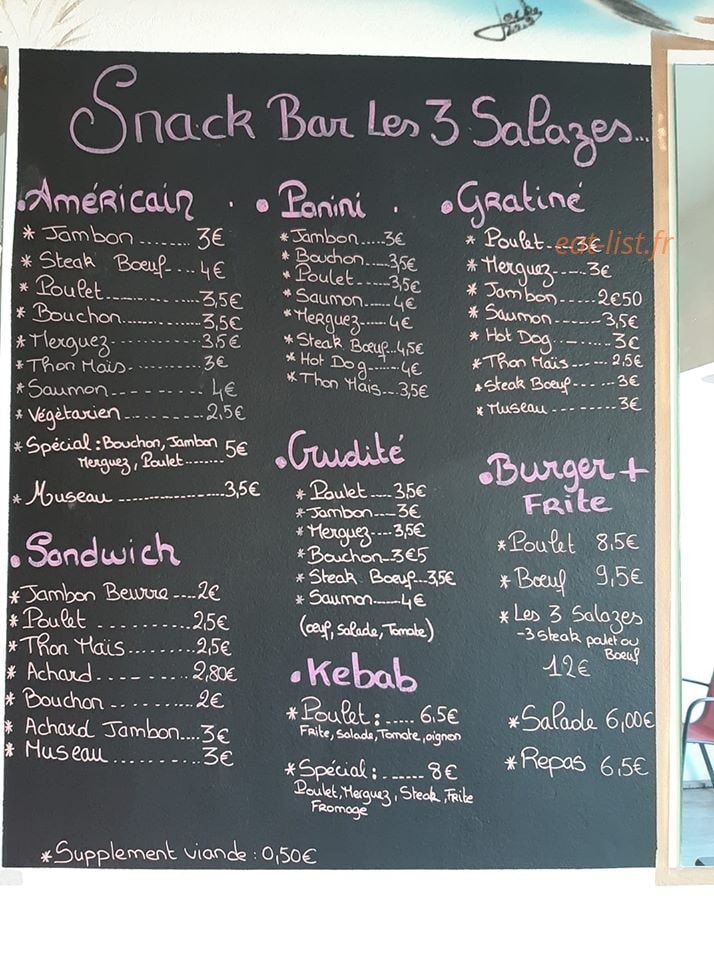 Snack Bar Les 3 Salazes...
.Américain .
* Jambon ........ 3€
* Steak Boeuf .... 4€
* Poulet ............ 3,5€
* Bouchon ........... 3,5€
* Merguez ........... 3,5€
* Thon Maïs ......... 3€
* Saumon ........... 4€
* Végètarien ........ 2,5€
* Spécial : Bouchon, Jambon
Merguez, Poulet ........ 5€
* Museau .................. 3,5€
.Sandwich
* Jambon Beurre .... 2€
* Poulet ........... 2,5€
* Thon Maïs ......... 2,5€
* Achard ........... 2,80€
* Bouchon .......... 2€
* Achard Jambon .... 3€
* Museau .......... 3€
. Panini .
* Jambon .... 3€
* Bouchon .... 3,5€
* Poulet ..... 3,5€
* Saumon ..... 4€
* Merguez ..... 4€
* Steak Boeuf .. 4,5€
* Hot Dog ...... 4€
* Thon Maïs ... 3,5€
.Crudité
* Poulet .... 3,5€
* Jambon .... 3€
* Merguez .... 3,5€
* Bouchon .. 3€5
* Steak Boeuf .. 3,5€
* Saumon ...... 4€
(oeuf, Salade, Tomate)
.Kebab
* Poulet : ..... 6,5€
Frite, Salade, Tomate, oignon
* Spécial : ...... 8€
Poulet, Merguez, Steak, Frite
Fromage
.Gratiné
* Poulet .. 3€
* Merguez ..... 3€
* Jambon ..... 2€50
* Saumon ....... 3,5€
* Hot Dog ....... 3€
* Thon Maïs .... 2,5€
* Steak Boeuf .... 3€
* Museau ........ 3€
.Burger +
Frite
* Poulet 8,5€
* Boeuf 9,5€
* Les 3 Salazes
- 3 Steak poulet ou
Boeuf
12€
* Salade 6,00€
* Repas 6,5€
* Supplement viande : 0,50€
eat-list.fr